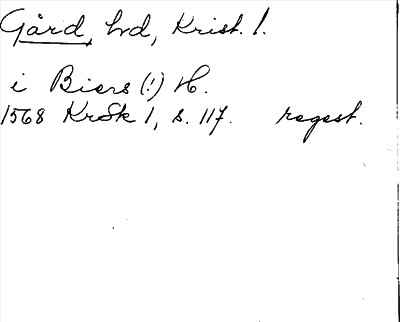 Gård, hd, Krist. l.
i Biers (!) H.
1568 KrSk 1, s. 117. regest.